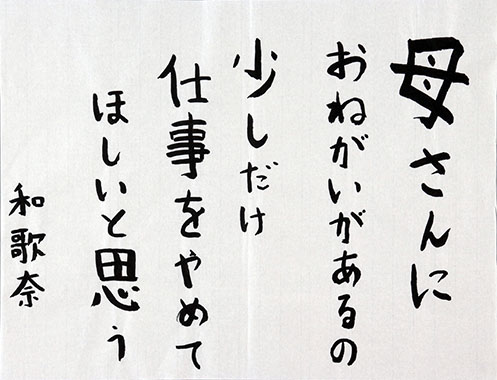 母さんに
おねがいがあるの
少しだけ
仕事をやめて
ほしいと思う
和歌奈